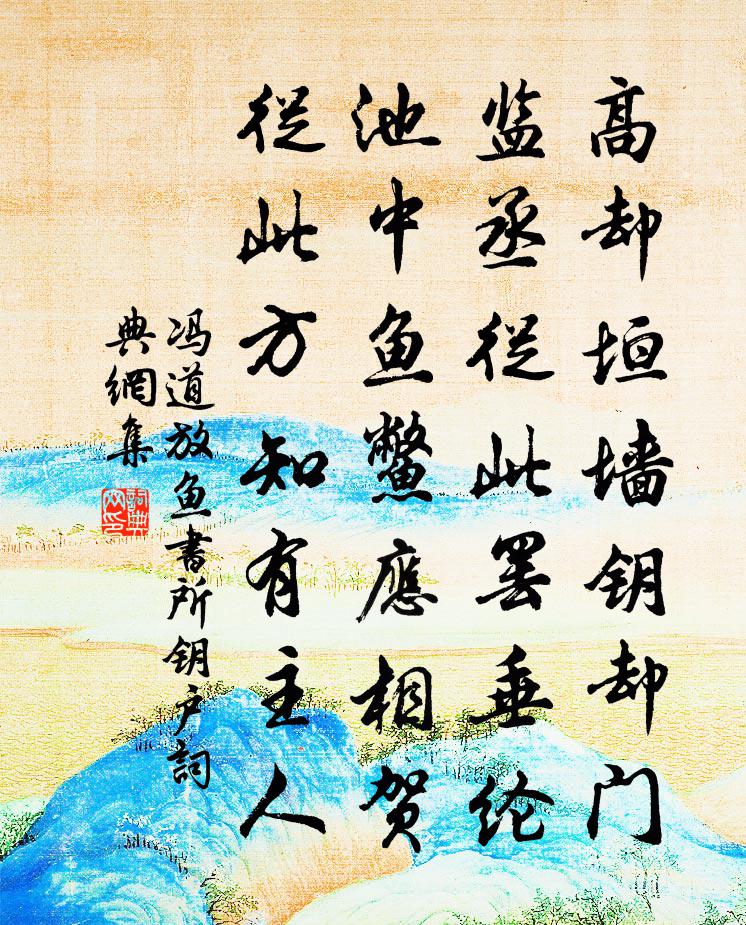 高却垣墙钥却门
监丞从此罢垂纶
池中鱼鳖應相贺
从此方知有主人
冯道放鱼書所钥户詞
典網集
詞典